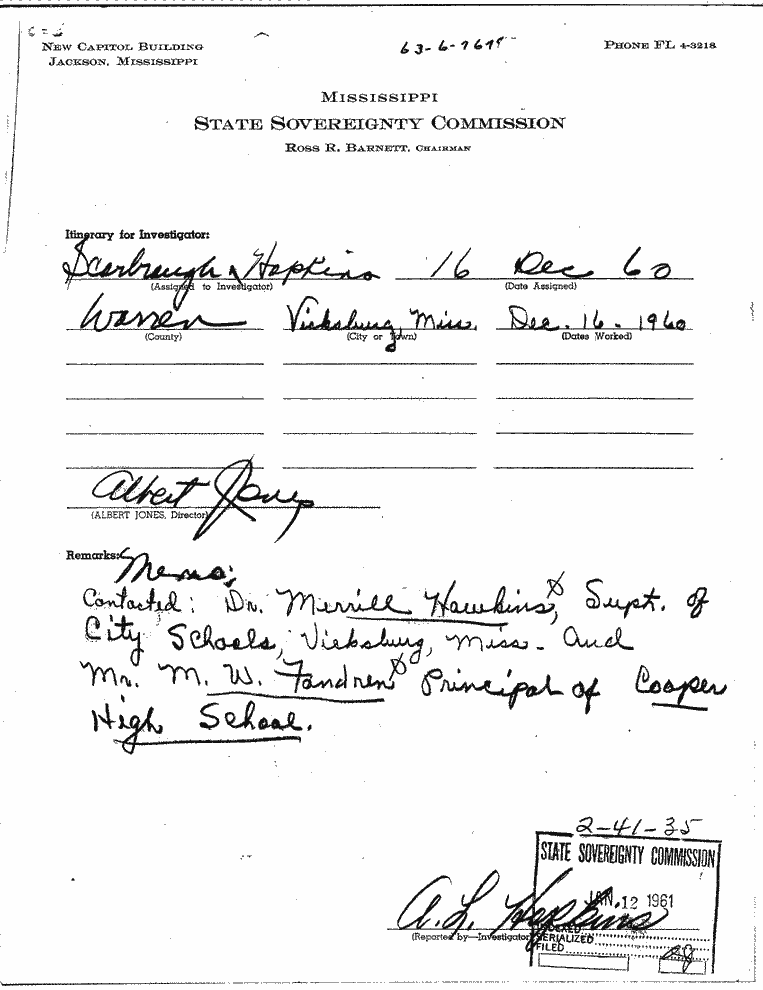 New Capitol Building
Jackson, Mississippi
Phone FL 4-3218
Mississippi
State Sovereignty Commission
Ross R. Barnett, Chairman
Itinerary for Investigator:
Scarbrough & Hopkins 16 Dec 60
(Assigned to Investigator) (Date Assigned)
Warren Vicksburg, Miss. Dec. 16. 1960
(County) (City or Town) (Dates Worked)
Albert Jones
(ALBERT JONES, Director)
Remarks:
Memo:
Contacted: Dr. Merrill Hawkins, Supt. of
City Schools, Vicksburg, Miss. and
Mr. M. W. Fandren Principal of Cooper
High School.
2-41-35
STATE SOVEREIGNTY COMMISSION
JAN. 12 1961
A. L. Hopkins
(Reported by—Investigator)
INDEXED
SERIALIZED
FILED